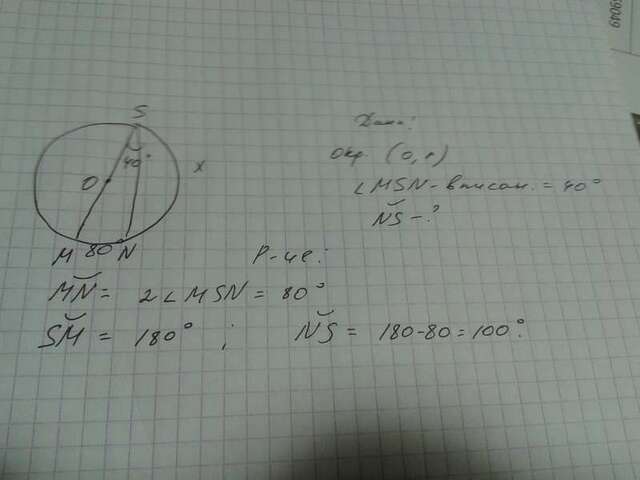 S
40°
O
x
M 80 N
Дано:
Окр. (O, r)
∠MSN - вписан. = 40°
N͡S - ?
Р-ие:
M͡N = 2∠MSN = 80°
S͡M = 180° ; N͡S = 180-80=100°.